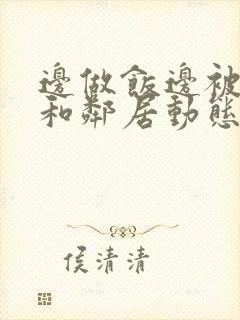 邊做飯邊被
和鄰居動態
侯清清